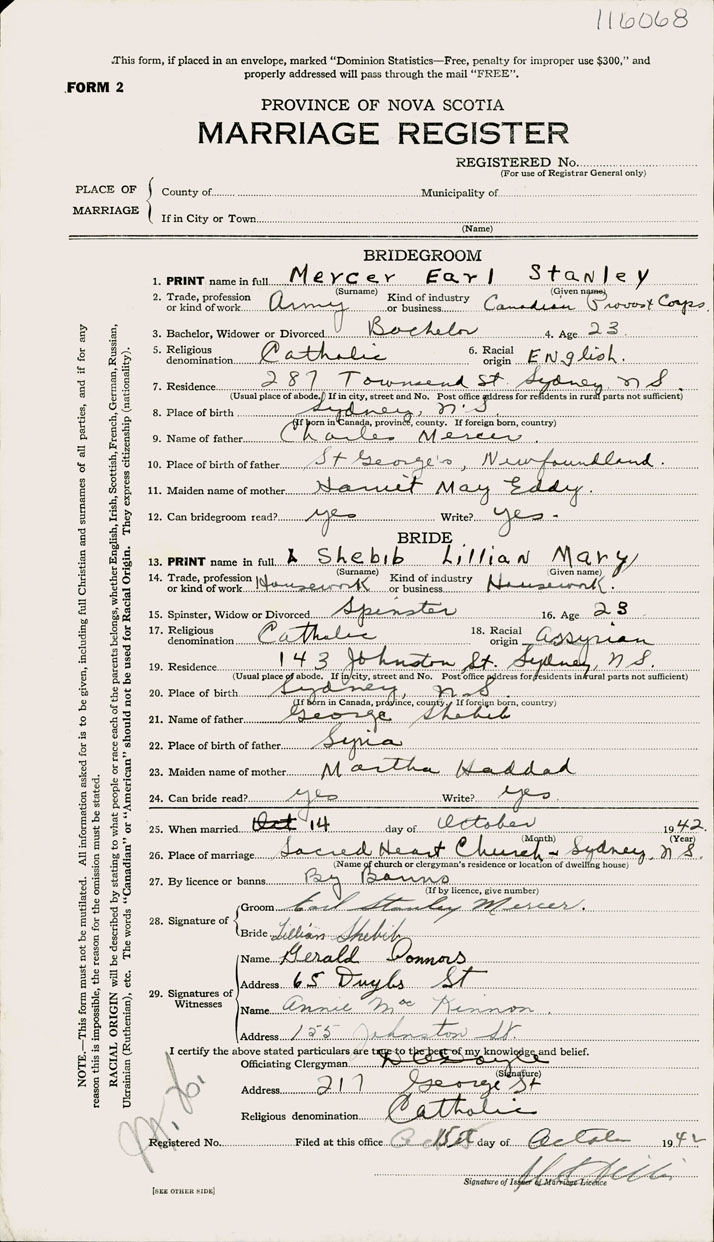 116068
This form, if placed in an envelope, marked "Dominion Statistics—Free, penalty for improper use $300," and
properly addressed will pass through the mail "FREE".
FORM 2
PROVINCE OF NOVA SCOTIA
MARRIAGE REGISTER
REGISTERED No.
(For use of Registrar General only)
PLACE OF MARRIAGE
County of
Municipality of
If in City or Town
(Name)
BRIDEGROOM
1. PRINT name in full Mercer Earl Stanley
(Surname) (Given name)
2. Trade, profession or kind of work Army Kind of industry or business Canadian Provost Corps.
3. Bachelor, Widower or Divorced Bachelor 4. Age 23
5. Religious denomination Catholic 6. Racial origin English.
7. Residence 287 Townsend St. Sydney, N S.
(Usual place of abode. If in city, street and No. Post office address for residents in rural parts not sufficient)
8. Place of birth Sydney, N.S.
(If born in Canada, province, county. If foreign born, country)
9. Name of father Charles Mercer
10. Place of birth of father St George's, Newfoundland.
11. Maiden name of mother Harriet May Eddy.
12. Can bridegroom read? yes Write? yes.
BRIDE
13. PRINT name in full Shebib Lillian Mary
(Surname) (Given name)
14. Trade, profession or kind of work Housework Kind of industry or business Housework.
15. Spinster, Widow or Divorced Spinster 16. Age 23
17. Religious denomination Catholic 18. Racial origin Assyrian
19. Residence 143 Johnston St. Sydney, N.S.
(Usual place of abode. If in city, street and No. Post office address for residents in rural parts not sufficient)
20. Place of birth Sydney, N.S.
(If born in Canada, province, county. If foreign born, country)
21. Name of father George Shebib
22. Place of birth of father Syria
23. Maiden name of mother Martha Haddad
24. Can bride read? yes Write? yes.
25. When married Oct 14 day of October 1942.
(Month) (Year)
26. Place of marriage Sacred Heart Church - Sydney, N S.
(Name of church or clergyman's residence or location of dwelling house)
27. By licence or banns By Banns
(If by licence, give number)
28. Signature of
Groom Earl Stanley Mercer.
Bride Lillian Shebib
29. Signatures of Witnesses
Name Gerald Connors
Address 65 St
Name Annie Mac Kinnon
Address 155 Johnston St.
I certify the above stated particulars are true to the best of my knowledge and belief.
Officiating Clergyman
(Signature)
Address 217 George St
Religious denomination Catholic
Registered No. Filed at this office 15th day of October 1942
Signature of Issuer of Marriage Licence
[SEE OTHER SIDE]
NOTE.—This form must not be mutilated. All information asked for is to be given, including full Christian and surnames of all parties, and if for any
reason this is impossible, the reason for the omission must be stated.
RACIAL ORIGIN will be described by stating to what people or race each of the parents belongs, whether English, Irish, Scottish, French, German, Russian,
Ukrainian (Ruthenian), etc. The words "Canadian" or "American" should not be used for Racial Origin. They express citizenship (nationality).